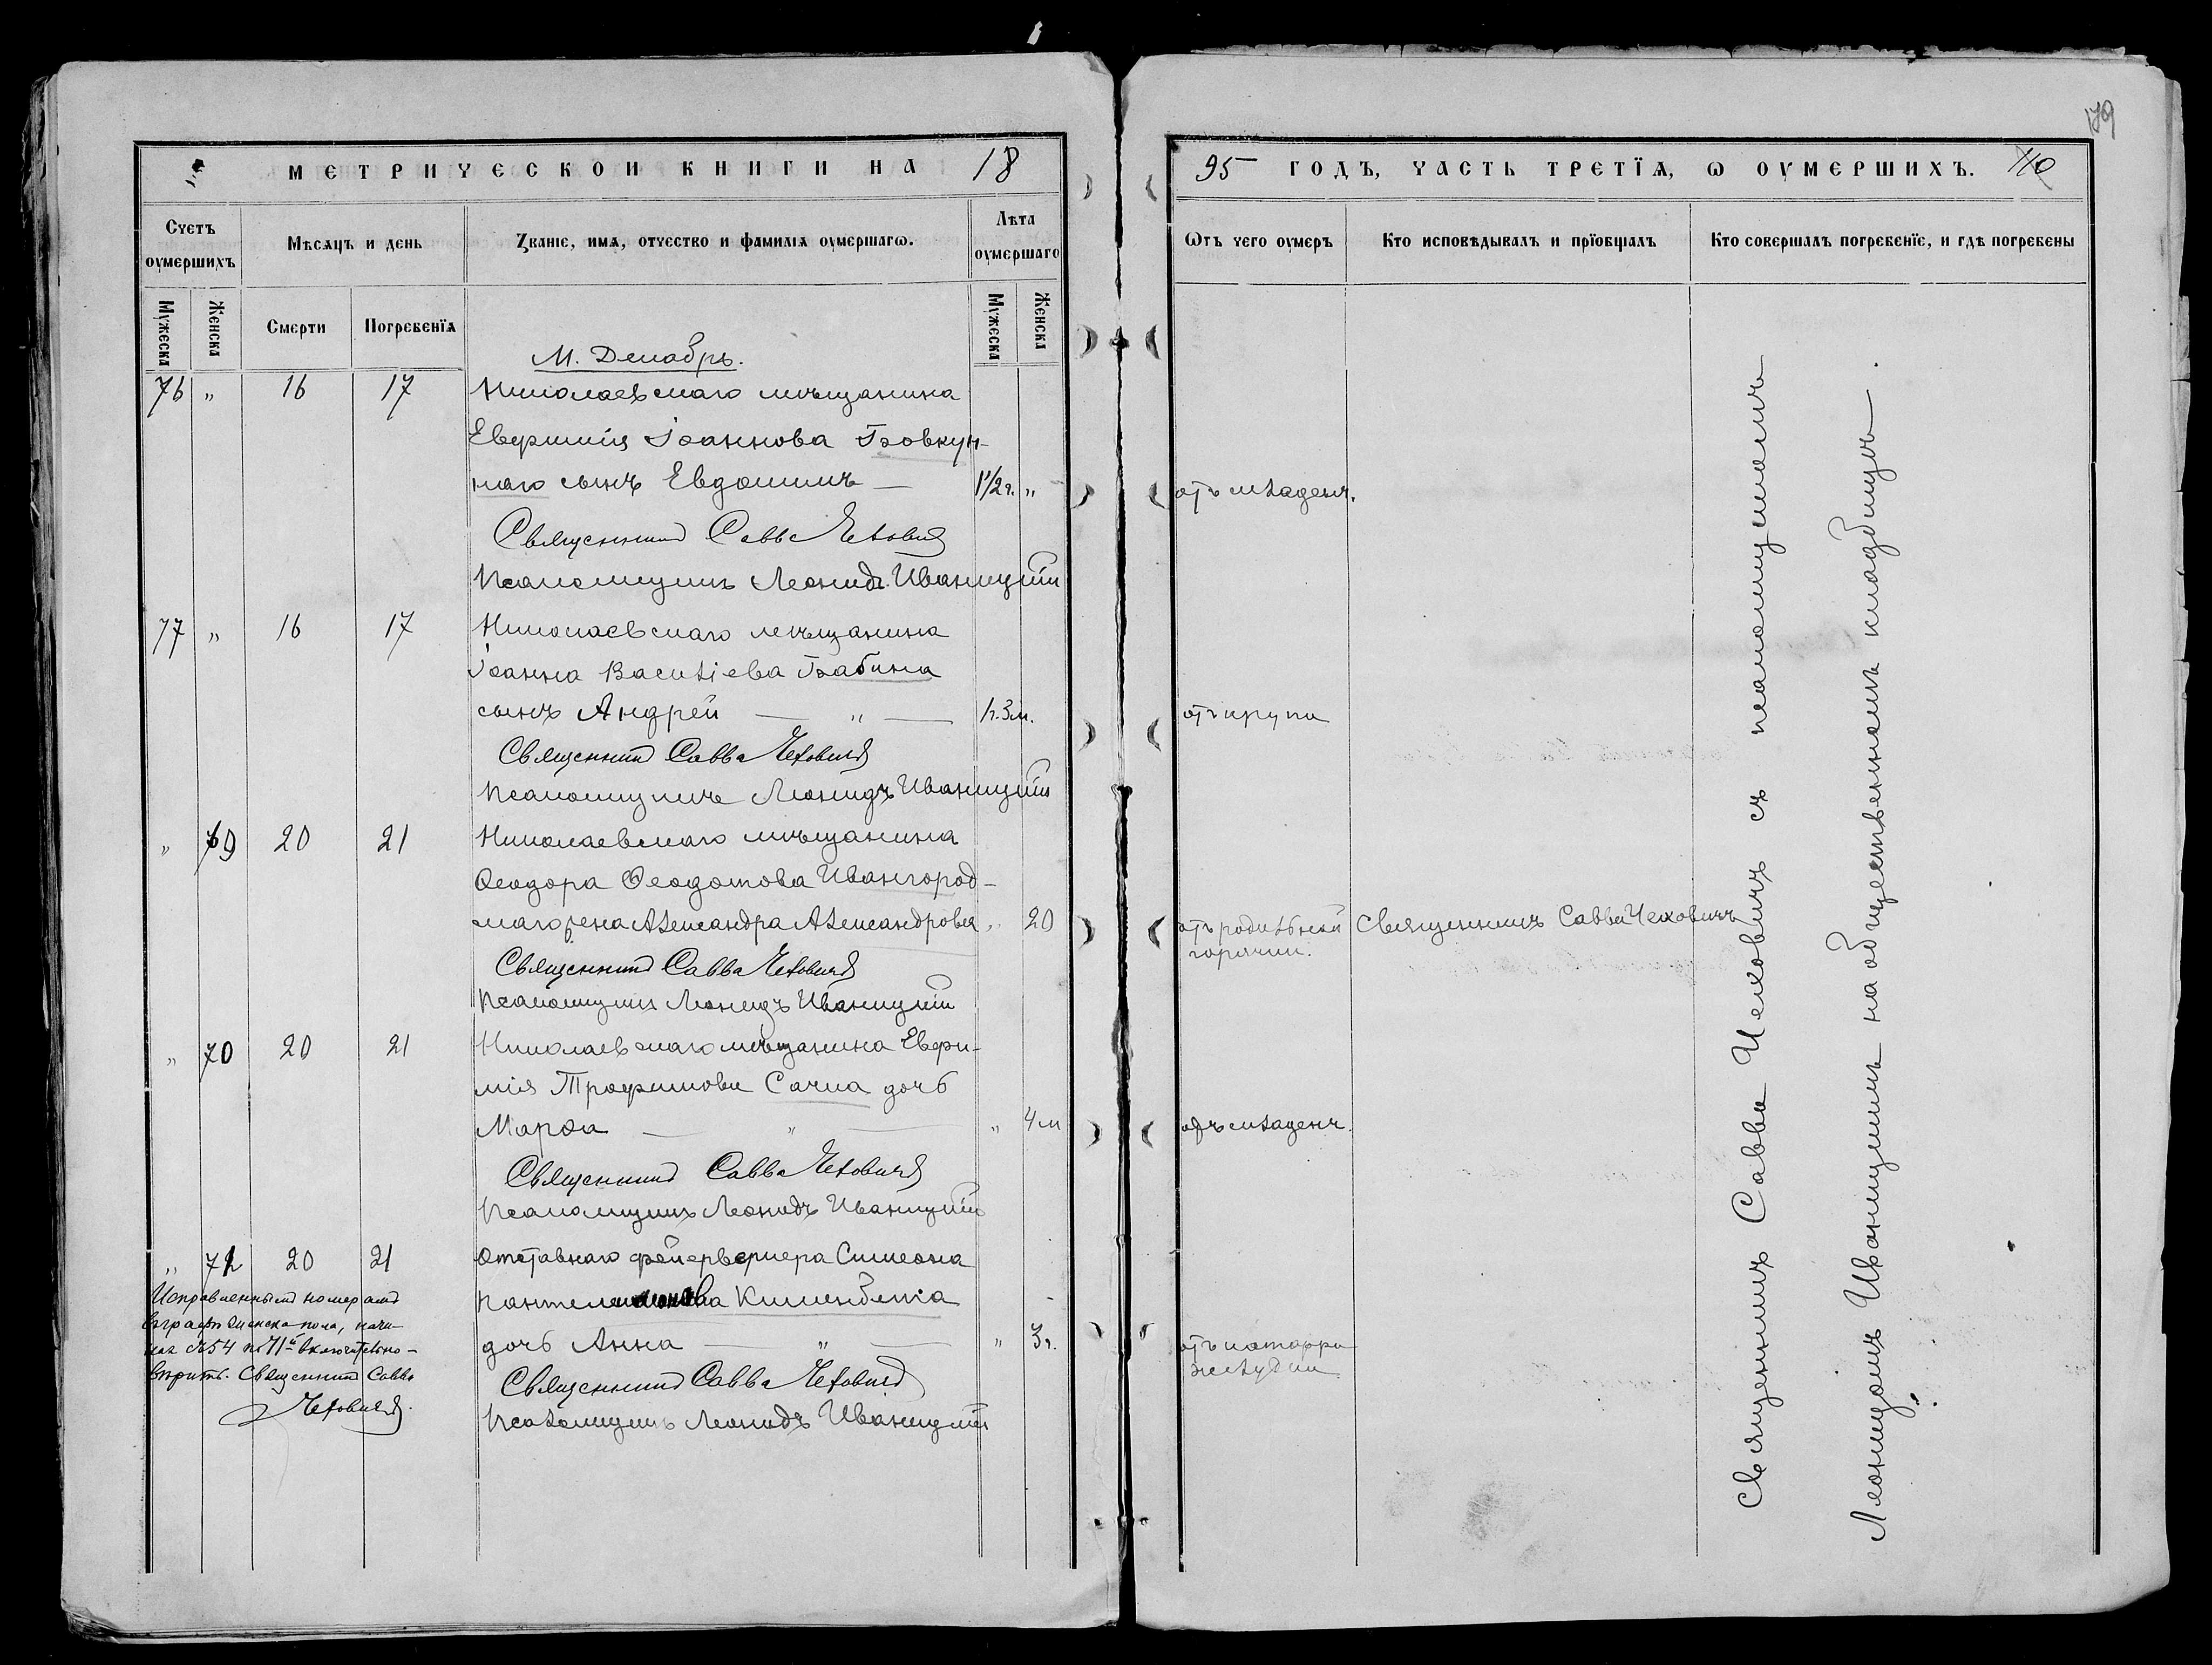 МЕТРИЧЕСКОЙ КНИГИ НА 18
Счетъ оумершихъ
Мѣсяцъ и день
Званіе, имя, отчество и фамилія оумершагѡ.
Лѣта оумершаго
Мужеска
Женска
Смерти
Погребенїя
Мужеска
Женска
М. Декабрь.
76 " 16 17 Николаевскаго мѣщанина
Евѳимія Іоаннова Бовкун-
наго сынъ Евдокимъ — 1 1/2 г. "
Священникъ Савва Чеховичъ
Псаломщикъ Леонидъ Иваницкій
77 " 16 17 Николаевскаго мѣщанина
Іоанна Василіева Бабина
сынъ Андрей — " — 1г. 3м.
Священникъ Савва Чеховичъ
Псаломщикъ Леонидъ Иваницкій
" 69 20 21 Николаевскаго мѣщанина
Ѳеодора Ѳеодотова Ивангород-
скаго жена Александра Александрова " 20
Священникъ Савва Чеховичъ
Псаломщикъ Леонидъ Иваницкій
" 70 20 21 Николаевскаго мѣщанина Евфи-
мія Трофимова Сачка дочь
Марѳа — " — " 4 м
Священникъ Савва Чеховичъ
Псаломщикъ Леонидъ Иваницкій
" 71 20 21 Отставнаго фейерверкера Симеона
Пантелеимонова
дочь Анна — " — " 3г.
Священникъ Савва Чеховичъ
Псаломщикъ Леонидъ Иваницкій
Исправленнымъ номерамъ
въ графѣ женска пола, начи-
ная съ 54 по 71й включительно —
вѣрить. Священникъ Савва
Чеховичъ.
179
95 ГОДЪ, ЧАСТЬ ТРЕТЇЯ, Ѡ ОУМЕРШИХЪ. 110
Ѿтъ чего оумеръ
Кто исповѣдывалъ и прїобщалъ
Кто совершалъ погребенїе, и гдѣ погребены
отъ младенч.
отъ крупа
отъ родильной
горячки.
Священникъ Савва Чеховичъ
отъ младенч.
отъ катарра
желудка
Священникъ Савва Чеховичъ съ псаломщикомъ
Леонидомъ Иваницкимъ на общественномъ кладбищѣ.